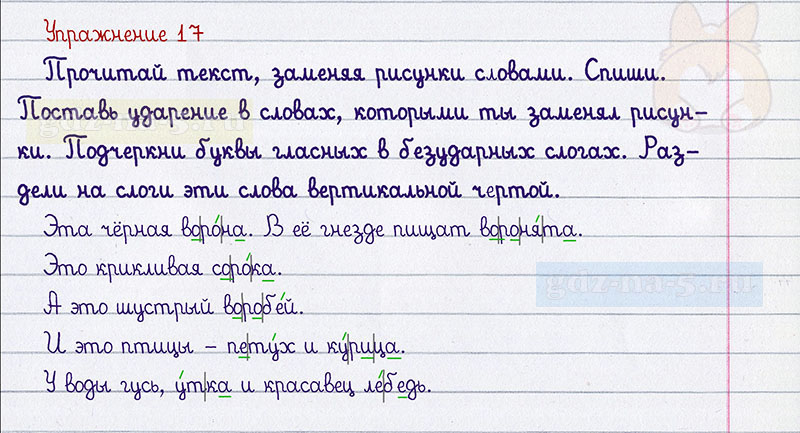 Упражнение 17
Прочитай текст, заменяя рисунки словами. Спиши.
Поставь ударение в словах, которыми ты заменял рисун-
ки. Подчеркни буквы гласных в безударных слогах. Раз-
дели на слоги эти слова вертикальной чертой.
Эта чёрная во|ро́|на. В её гнезде пищат во|ро|ня́|та.
Это крикливая со|ро́|ка.
А это шустрый во|ро|бе́й.
И это птицы – пе|ту́х и ку́|ри|ца.
У воды гусь, у́т|ка и красавец ле́|бедь.
gdz-na-5.ru
gdz-na-5.ru